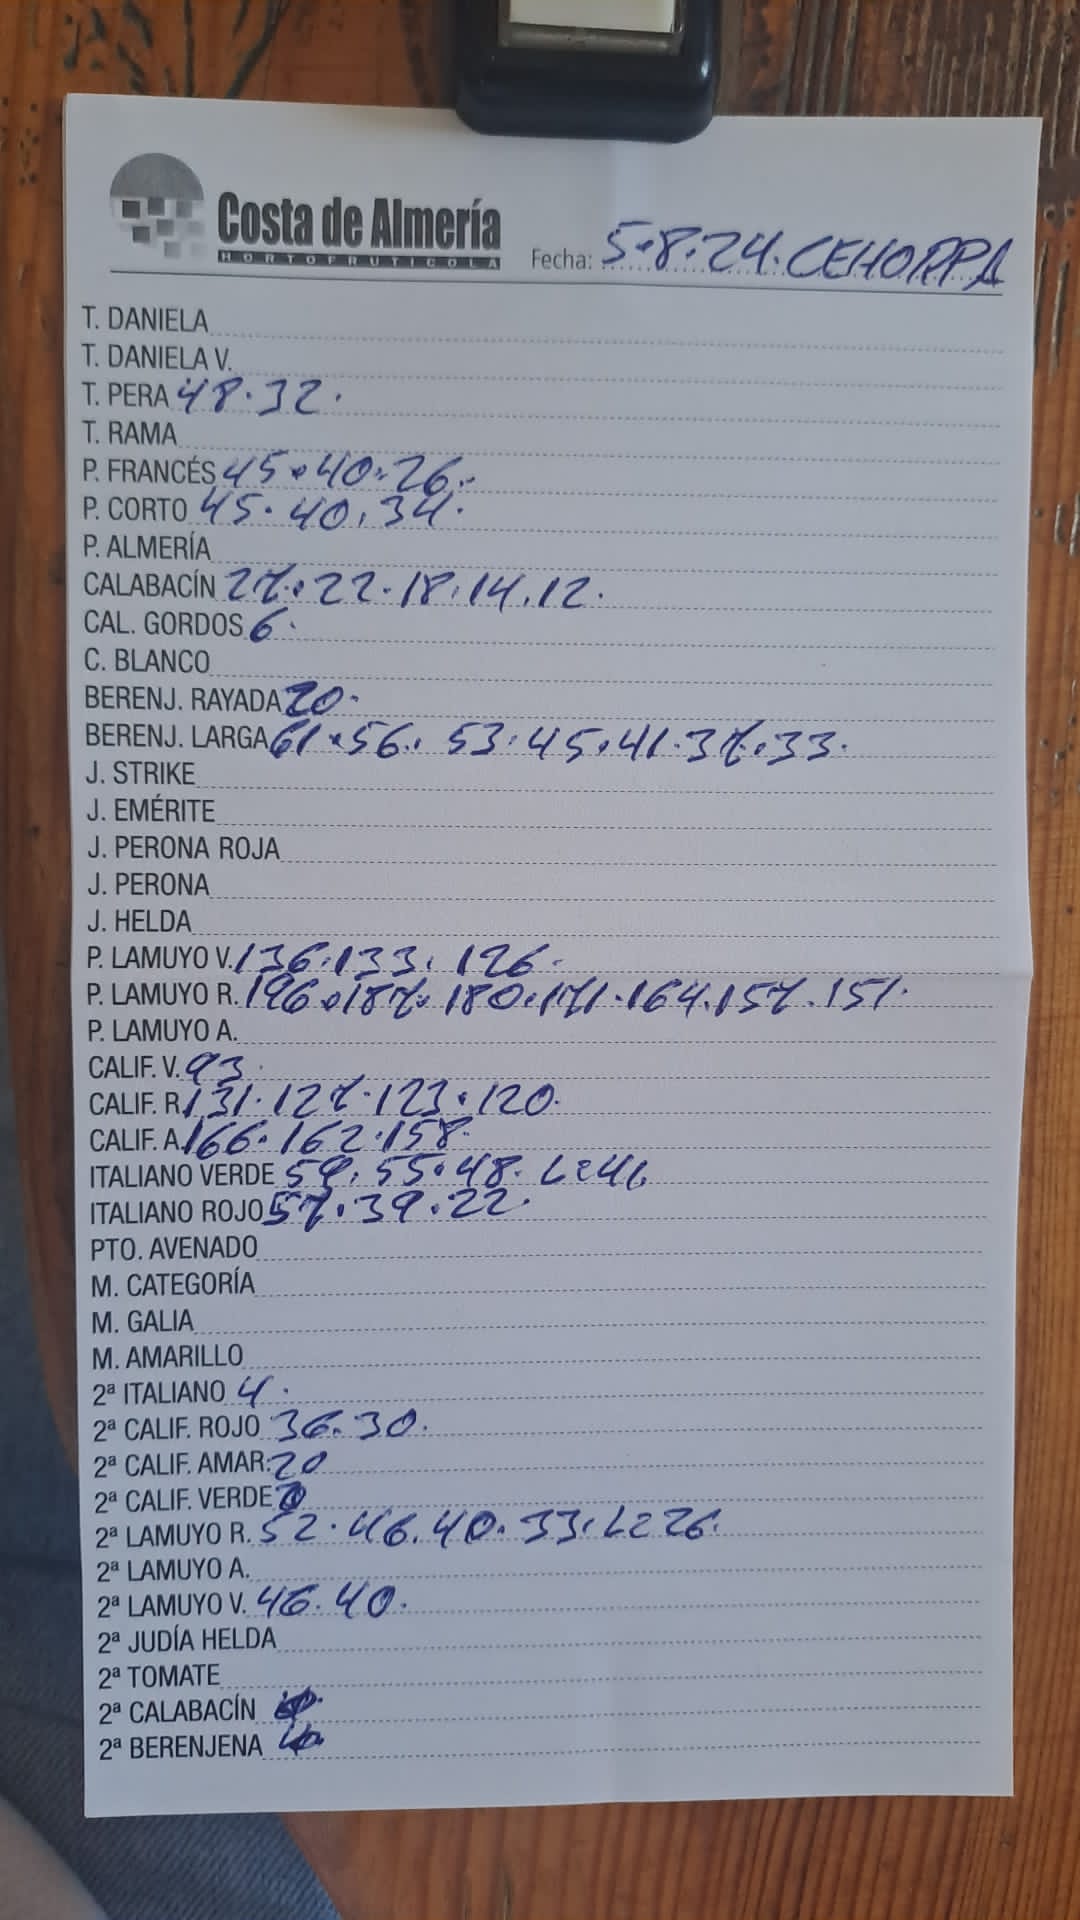 Costa de Almería
HORTOFRUTICOLA
Fecha: 5.8.24. CEHORPA
T. DANIELA
T. DANIELA V.
T. PERA 48.32.
T. RAMA
P. FRANCÉS 45.40.26.
P. CORTO 45.40.34.
P. ALMERÍA
CALABACÍN 27.22.18.14.12.
CAL. GORDOS 6.
C. BLANCO
BERENJ. RAYADA 20.
BERENJ. LARGA 61.56.53.45.41.37.33.
J. STRIKE
J. EMÉRITE
J. PERONA ROJA
J. PERONA
J. HELDA
P. LAMUYO V. 136.133.126.
P. LAMUYO R. 196.187.180.171.164.157.151.
P. LAMUYO A.
CALIF. V. 93.
CALIF. R. 131.127.123.120.
CALIF. A. 166.162.158.
ITALIANO VERDE 59.55.48.L=41.
ITALIANO ROJO 57.39.22.
PTO. AVENADO
M. CATEGORÍA
M. GALIA
M. AMARILLO
2ª ITALIANO 4.
2ª CALIF. ROJO 36.30.
2ª CALIF. AMAR. 20
2ª CALIF. VERDE
2ª LAMUYO R. 52.46.40.33.L=26.
2ª LAMUYO A.
2ª LAMUYO V. 46.40.
2ª JUDÍA HELDA
2ª TOMATE
2ª CALABACÍN
2ª BERENJENA